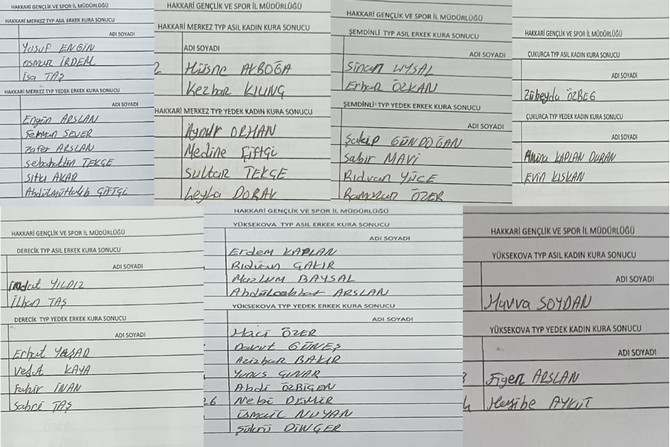 HAKKARİ GENÇLİK VE SPOR İL MÜDÜRLÜĞÜ
HAKKARİ MERKEZ TYP ASIL ERKEK KURA SONUCU
ADI SOYADI
Yusuf ENGİN
osman İRDEM
İsa TAŞ
HAKKARİ MERKEZ TYP YEDEK ERKEK KURA SONUCU
ADI SOYADI
Engin ARSLAN
Ferman SEVER
Zafer ARSLAN
Sebahattin TEKÇE
Sıtkı AKAR
Abdulmuttalib ÇİFTÇİ
HAKKARİ GENÇLİK VE SPOR İL MÜDÜRLÜĞÜ
HAKKARİ MERKEZ TYP ASIL KADIN KURA SONUCU
ADI SOYADI
2 Hüsne AKBOĞA
Kezbar KILINÇ
HAKKARİ MERKEZ TYP YEDEK KADIN KURA SONUCU
Aynur ORHAN
Medine ÇİFTÇİ
Sultan TEKÇE
Leyla
HAKKARİ GENÇLİK VE SPOR İL MÜDÜRLÜĞÜ
ŞEMDİNLİ TYP ASIL ERKEK KURA SONUCU
ADI SOYADI
Sinan UYSAL
Erhan ÖZKAN
ŞEMDİNLİ TYP YEDEK ERKEK KURA SONUCU
ADI SOYADI
Şakip GÜNDOĞAN
Sabir MAVİ
Rıdvan YÜCE
Ramazan ÖZER
HAKKARİ GENÇLİK VE SPOR İL MÜDÜRLÜĞÜ
ÇUKURCA TYP ASIL KADIN KURA SONUCU
ADI SOYADI
Zübeyda ÖZBEG
ÇUKURCA TYP YEDEK KADIN KURA SONUCU
ADI SOYADI
KAPLAN DURAN
Evin KISKAN
HAKKARİ GENÇLİK VE SPOR İL MÜDÜRLÜĞÜ
DERECİK TYP ASIL ERKEK KURA SONUCU
ADI SOYADI
YILDIZ
İlhan TAŞ
DERECİK TYP YEDEK ERKEK KURA SONUCU
ADI SOYADI
Erhat YAŞAD
Vedat KAYA
Fahir İNAN
Sabri TAŞ
HAKKARİ GENÇLİK VE SPOR İL MÜDÜRLÜĞÜ
YÜKSEKOVA TYP ASIL ERKEK KURA SONUCU
ADI SOYADI
Erdem KAPLAN
Rıdvan ÇAKIR
Mazlum BAYSAL
ARSLAN
YÜKSEKOVA TYP YEDEK ERKEK KURA SONUCU
ADI SOYADI
Hacı ÖZER
Davut GÜNEŞ
Azizhan BAKIR
Yunus ÇINAR
Abdi ÖZBİGEN
26 Nebi DEMİR
İsmail NUYAN
Şükrü DİNÇER
HAKKARİ GENÇLİK VE SPOR İL MÜDÜRLÜĞÜ
YÜKSEKOVA TYP ASIL KADIN KURA SONUCU
ADI SOYADI
Havva SOYDAN
YÜKSEKOVA TYP YEDEK KADIN KURA SONUCU
ADI SOYADI
Figen ARSLAN
Hasibe AYKUT